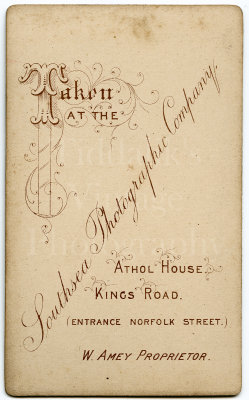 Taken
AT THE
Southsea Photographic Company.
ATHOL HOUSE.
KINGS ROAD.
(ENTRANCE NORFOLK STREET.)
W. AMEY PROPRIETOR.